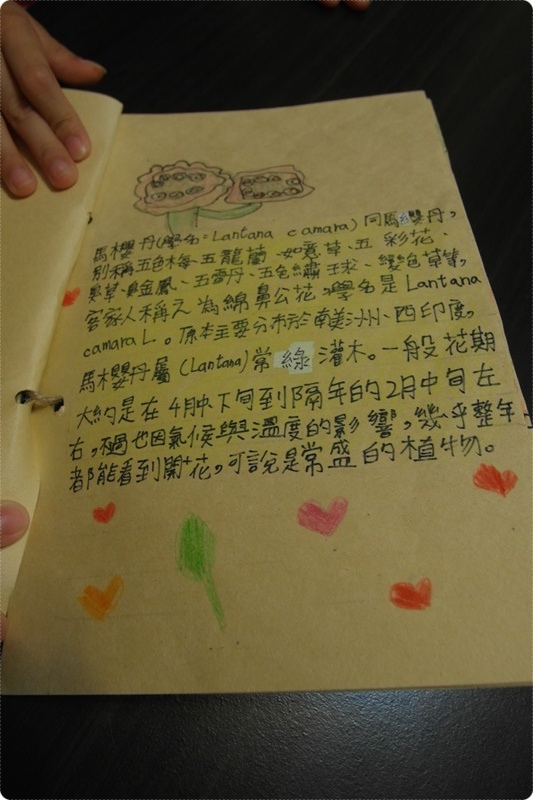 馬櫻丹(學名:Lantana camara)同馬纓丹,
別稱五色梅、五龍蘭、如意草、五彩花、
臭草、臭金鳳、五雷丹、五色繡球、變色草等,
客家人稱之為綿鼻公花,學名是Lantana
camara L。原本主要分布於南美洲、西印度,
馬櫻丹屬(Lantana)常綠灌木。一般花期
大約是在4月中下旬到隔年的2月中旬左
右,不過也因氣候與溫度的影響,幾乎整年
都能看到開花,可說是常盛的植物。